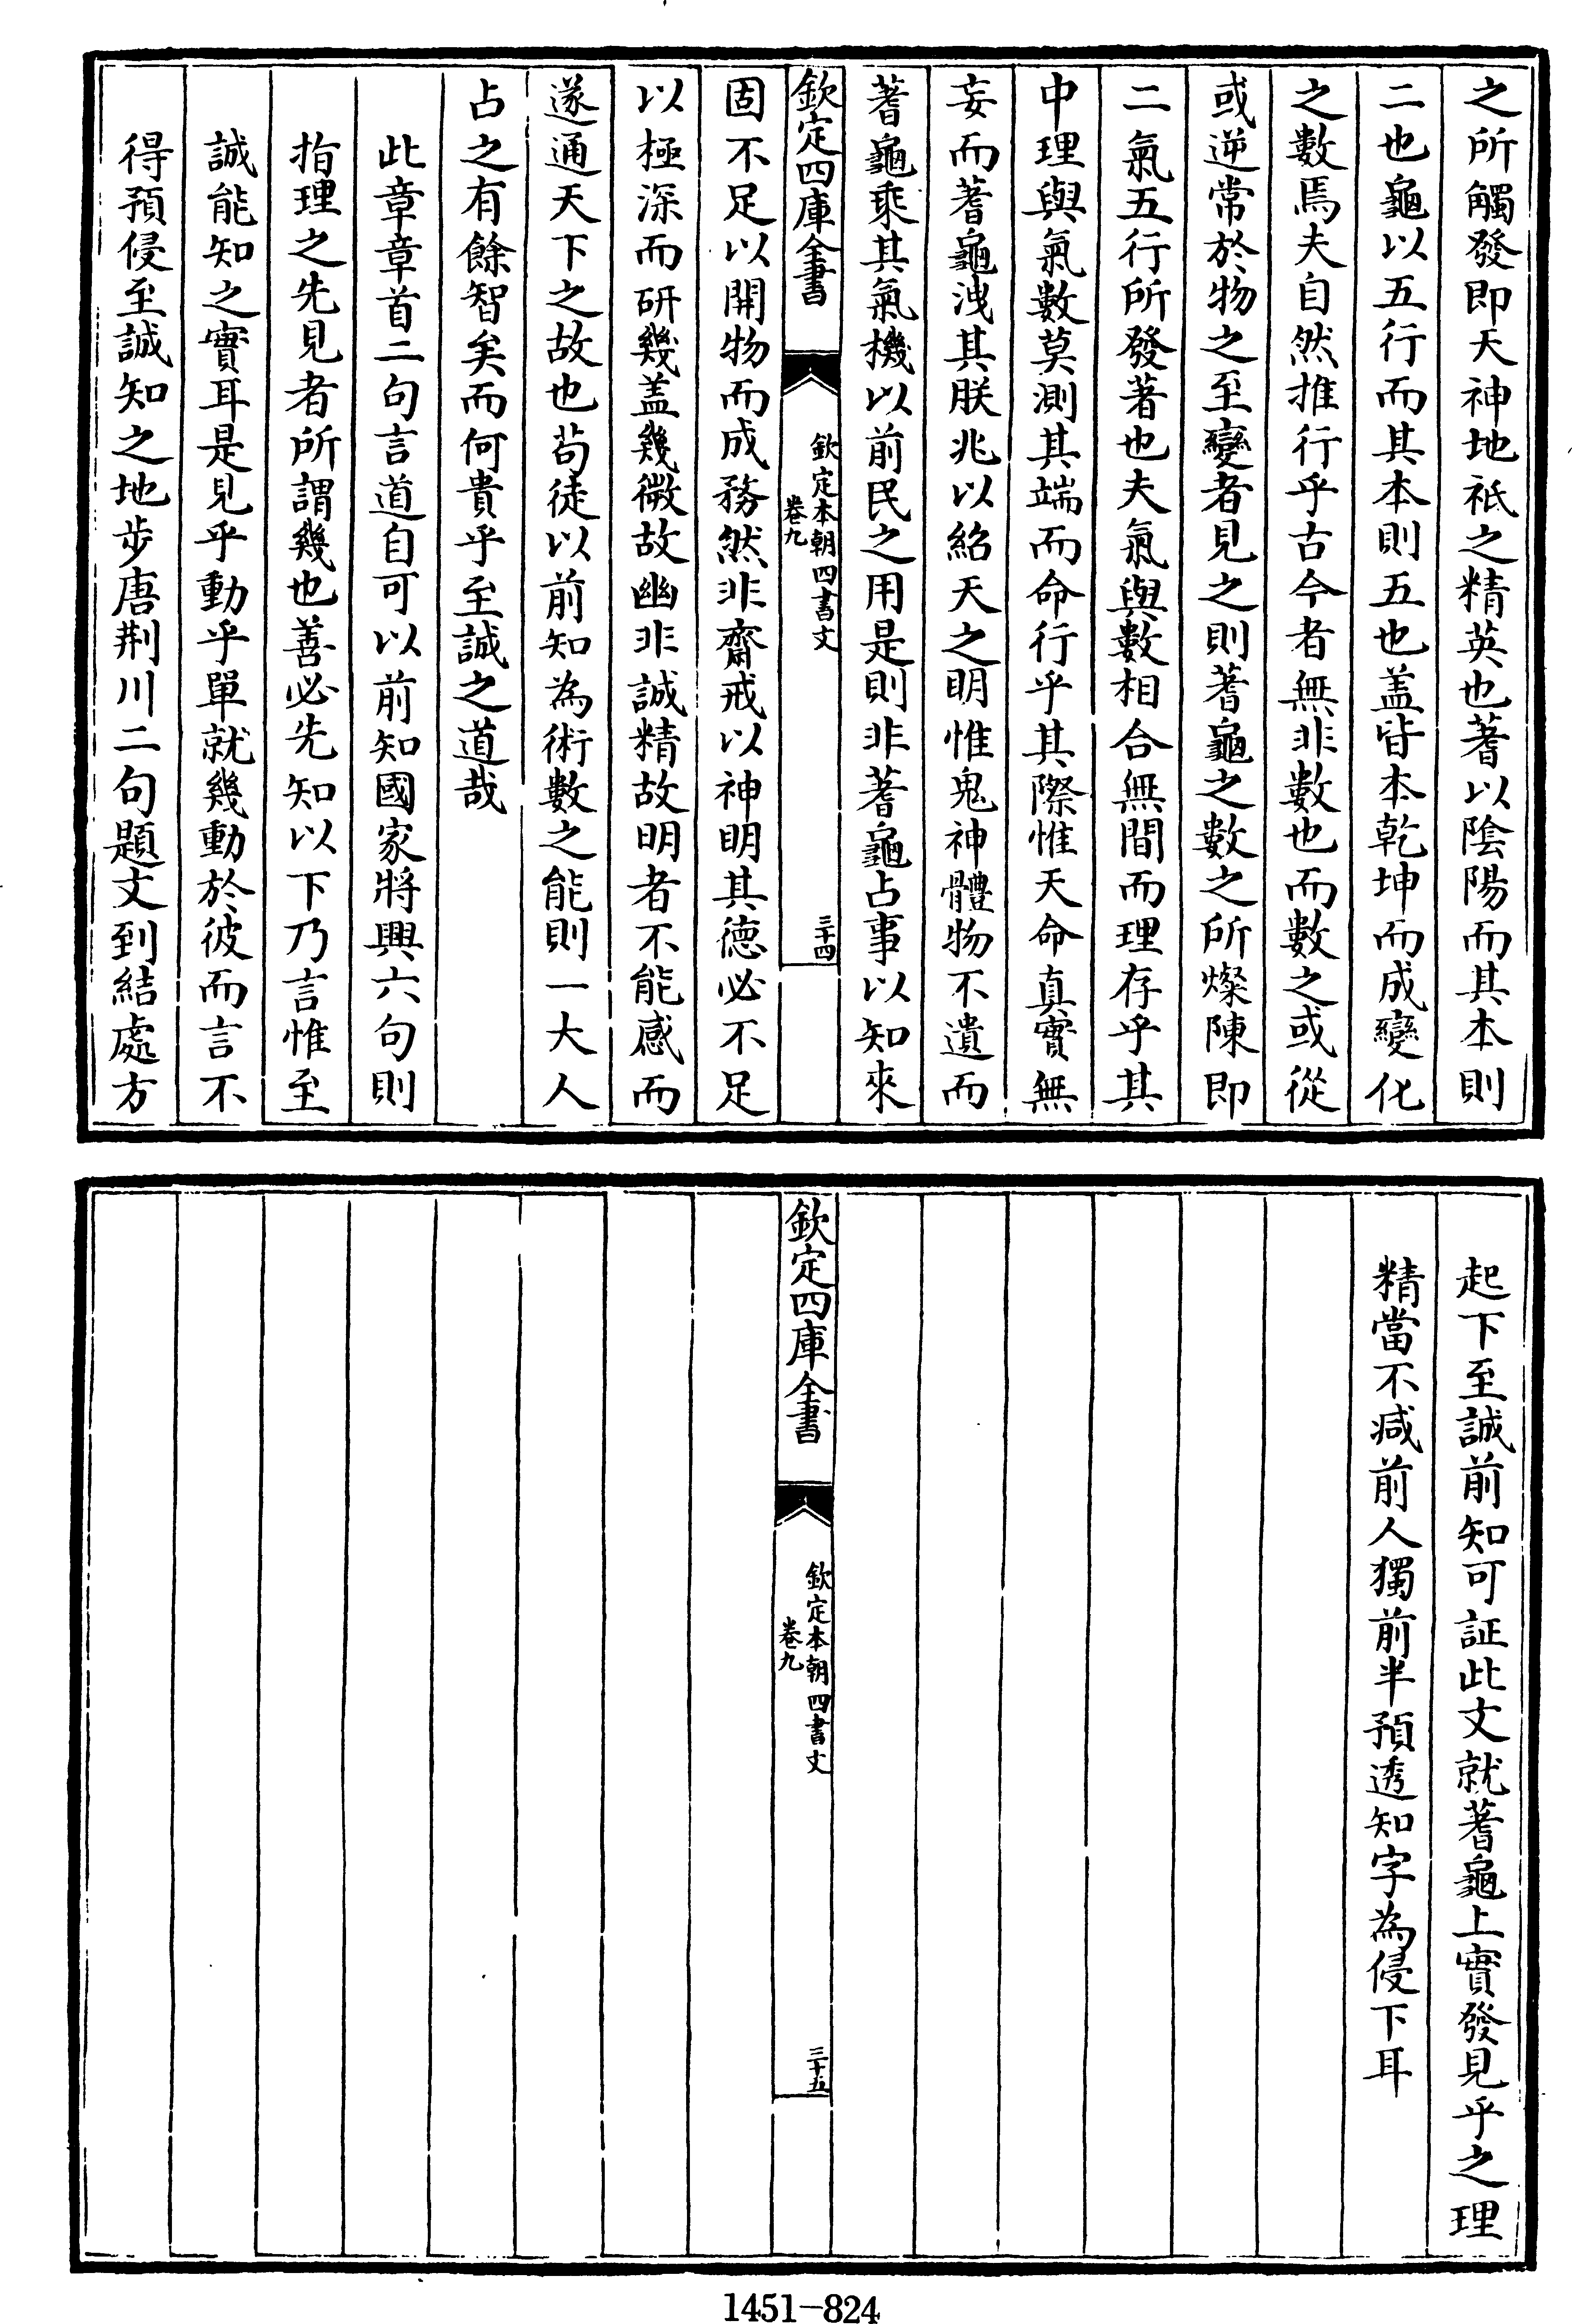 之所觸發即天神地祇之精英也蓍以陰陽而其本則
二也龜以五行而其本則五也盖皆本乾坤而成變化
之數焉夫自然推行乎古今者無非數也而數之或從
或逆常於物之至變者見之則蓍龜之數之所燦陳即
二氣五行所發著也夫氣與數相合無間而理存乎其
中理與氣數莫測其端而命行乎其際惟天命真實無
妄而蓍龜洩其朕兆以紹天之明惟鬼神體物不遺而
蓍龜乘其氣機以前民之用是則非蓍龜占事以知來
欽定四庫全書
欽定本朝四書文
卷九
三十四
固不足以開物而成務然非齋戒以神明其德必不足
以極深而研幾盖幾微故幽非誠精故明者不能感而
遂通天下之故也茍徒以前知為術數之能則一大人
占之有餘智矣而何貴乎至誠之道哉
此章章首二句言道自可以前知國家將興六句則
指理之先見者所謂幾也善必先知以下乃言惟至
誠能知之實耳是見乎動乎單就幾動於彼而言不
得預侵至誠知之地步唐荆川二句題文到結處方
起下至誠前知可証此文就蓍龜上實發見乎之理
精當不减前人獨前半預透知字為侵下耳
欽定四庫全書
欽定本朝四書文
卷九
三十五
1451-824